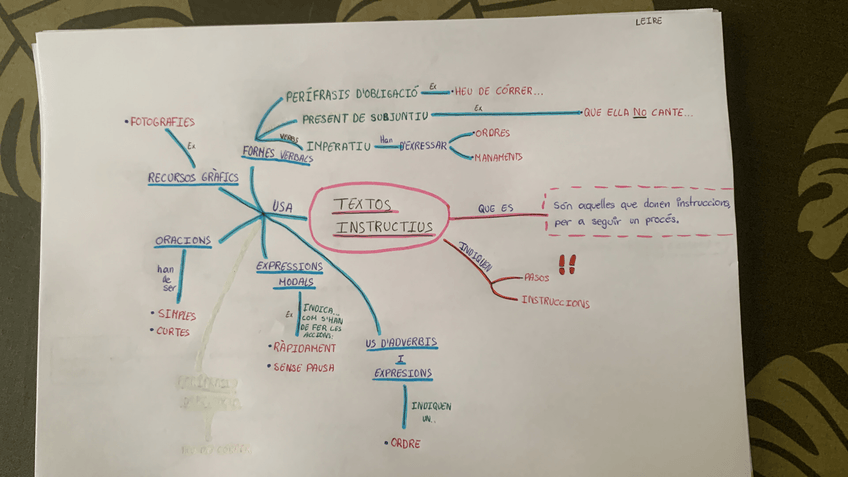 LEIRE
PERÍFRASIS D'OBLIGACIÓ Ex • HEU DE CÓRRER...
PRESENT DE SUBJUNTIU Ex • QUE ELLA NO CANTE...
VERBS
IMPERATIU Han D'EXPRESSAR
• ORDRES
• MANAMENTS
FORMES VERBALS
• FOTOGRAFIES
Ex
RECURSOS GRÀFICS
USA
TEXTOS
INSTRUCTIUS
QUE ES
Són aquelles que donen instruccions,
per a seguir un procés.
INDIQUEN
• PASOS
• INSTRUCCIONS
ORACIONS
han
de
ser
• SIMPLES
• CURTES
EXPRESSIONS
MODALS
Ex
INDICA...
COM S'HAN
DE FER LES
ACCIONS:
• RÀPIDAMENT
• SENSE PAUSA
US D'ADVERBIS
I
EXPRESIONS
INDIQUEN
UN..
• ORDRE